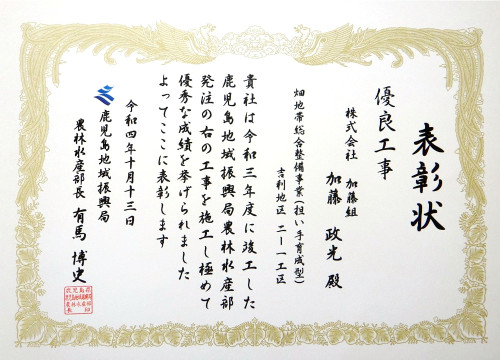 表彰状
優良工事
株式会社 加藤組
加藤 政光 殿
畑地帯総合整備事業(担い手育成型)
吉利地区 二ー一工区
貴社は令和三年度に竣工した
鹿児島地域振興局農林水産部
発注の右の工事を施工し極めて
優秀な成績を挙げられました
よってここに表彰します
令和四年十月十三日
鹿児島地域振興局
農林水産部長 有馬 博史